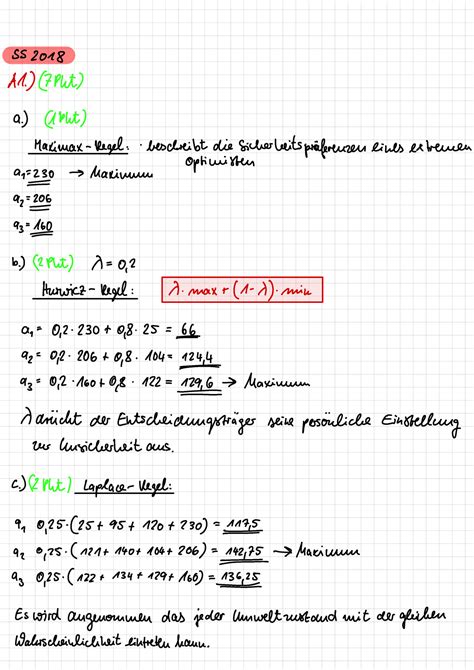 SS 2018
A1.) (7 Pkt)
a.) (1 Pkt)
Maximax-Regel: · beschreibt die Sicherheitspräferenzen eines extremen
Optimisten
a₁=230 → Maximum
a₂=206
a₃=160
b.) (2 Pkt) λ=0,2
Hurwicz-Regel: λ·max+(1-λ)·min
a₁= 0,2·230+0,8·25= 66
a₂= 0,2·206+0,8·104= 124,4
a₃= 0,2·160+0,8·122= 129,6 → Maximum
λ drückt der Entscheidungsträger seine persönliche Einstellung
zur Unsicherheit aus.
c.) (2 Pkt) Laplace-Regel:
a₁ 0,25·(25+95+120+230)= 117,5
a₂ 0,25·(121+140+104+206)= 142,75 → Maximum
a₃ 0,25·(122+134+129+160)= 136,25
Es wird angenommen das jeder Umweltzustand mit der gleichen
Wahrscheinlichkeit eintreten kann.